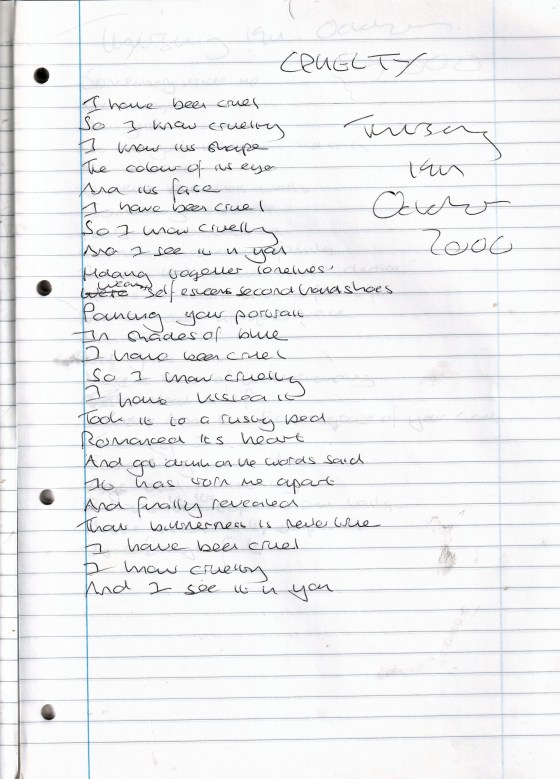 CRUELTY
I have been cruel
So I know cruelty
I know its shape
The colour of its eye
And its face
I have been cruel
So I know cruelty
And I see it in you
Holding together loneliness
wearing self esteems second hand shoes
Painting your portrait
In shades of blue
I have been cruel
So I know cruelty
I have kissed it
Took it to a rusty bed
Romanced its heart
And got drunk on the words said
It has torn me apart
And finally revealed
That bitterness is never true
I have been cruel
I know cruelty
And I see it in you
October
2000